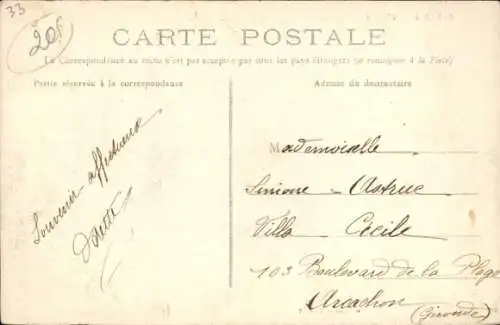 33
20f
CARTE POSTALE
La Correspondance au recto n'est pas acceptée par tous les pays étrangers (se renseigner à la Poste)
Partie réservée à la correspondance
Adresse du destinataire
Souvenir affectueux
Mademoiselle
Simone Astruc
Villa Cécile
103 Boulevard de la Plage
Arcachon (Gironde)